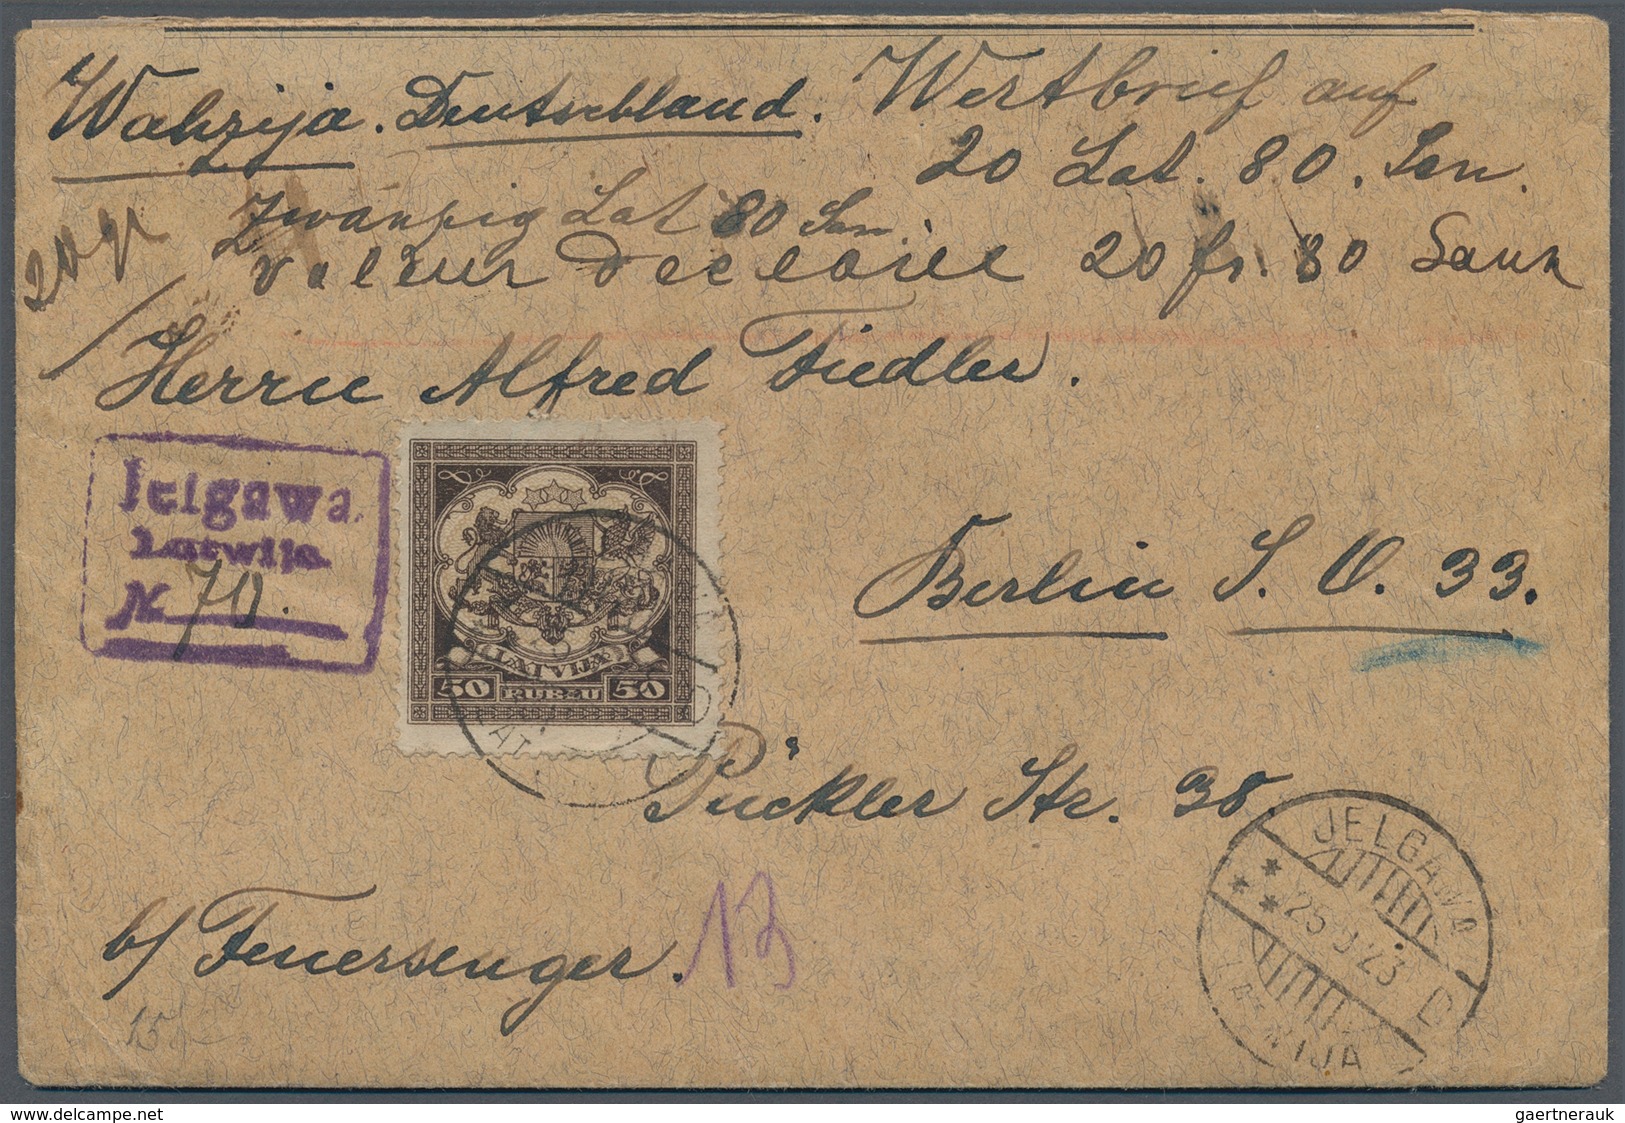 Wahzija. Deutschland. Wertbrief auf
20 Lat. 80. Sen.
Zwanzig Lat 80 Sen.
valeur declarée 20 fr. 80
20 gr
Herrn Alfred Fiedler.
Jelgawa
Latwija
N 70.
LATVIJA
50 RUBĻU 50
Berlin S. O. 33.
Pückler Str. 38.
b/ Feuersenger.
13
15
JELGAWA
25 9 23 D
LATWIJA
gaertnerauk
www.delcampe.net